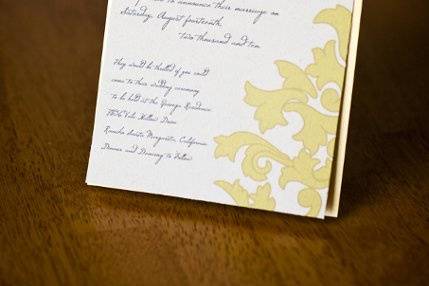 to announce their marriage on
Saturday, August fourteenth
two thousand and ten
They would be thrilled if you could
come to their wedding ceremony
to be held at the George Residence
Hollow Drive
Rancho Santa Margarita, California
Dinner and Dancing to Follow